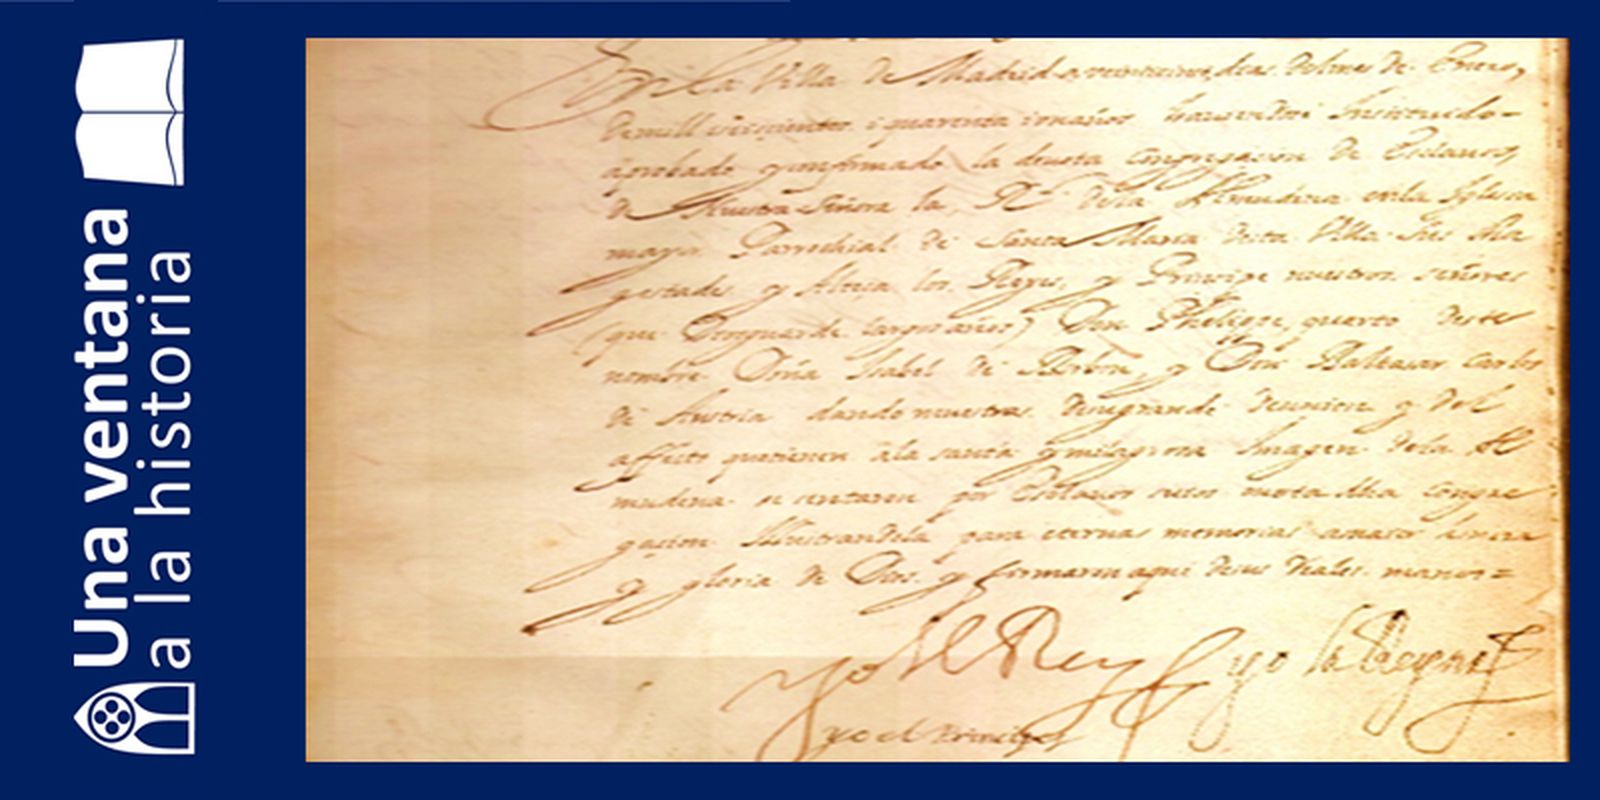 Una ventana
a la historia
En la Villa de Madrid a veinticinco dias del mes de Enero,
de mill seiscientos i quarenta i un años haviendose Instituido=
aprobado y confirmado la devota Congregacion de Esclavos,
de Nuestra Señora la R.l de la Almudena en la Iglesia
mayor Parrochial de Santa Maria desta Villa Sus Ma
gestades y Alteza los Reyes, y Principe nuestros señores
(que Dios guarde largos años) Don Phelippe quarto deste
nombre Doña Isabel de Borbon, y Don Baltasar Carlos
de Austria dando muestras de su grande devocion y del
affecto que tienen a la santa y milagrosa Imagen de la Al
mudena se sentaron por Esclavos suyos en esta dha Congre
gacion Illustrandola para eternas memorias a mayor honra
y gloria de Dios y firmaron aqui de sus Reales manos=
yo el Rey yo la Reyna
yo el Principe